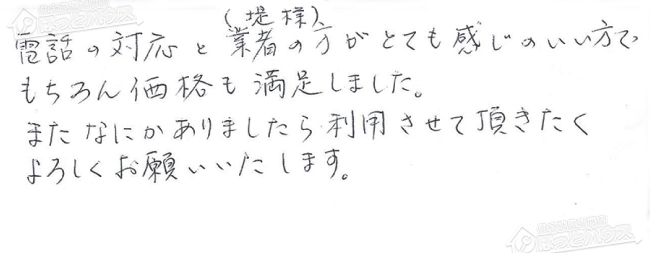 (堤様)
電話の対応と業者の方がとても感じのいい方で
もちろん価格も満足しました。
またなにかありましたら利用させて頂きたく
よろしくお願いいたします。